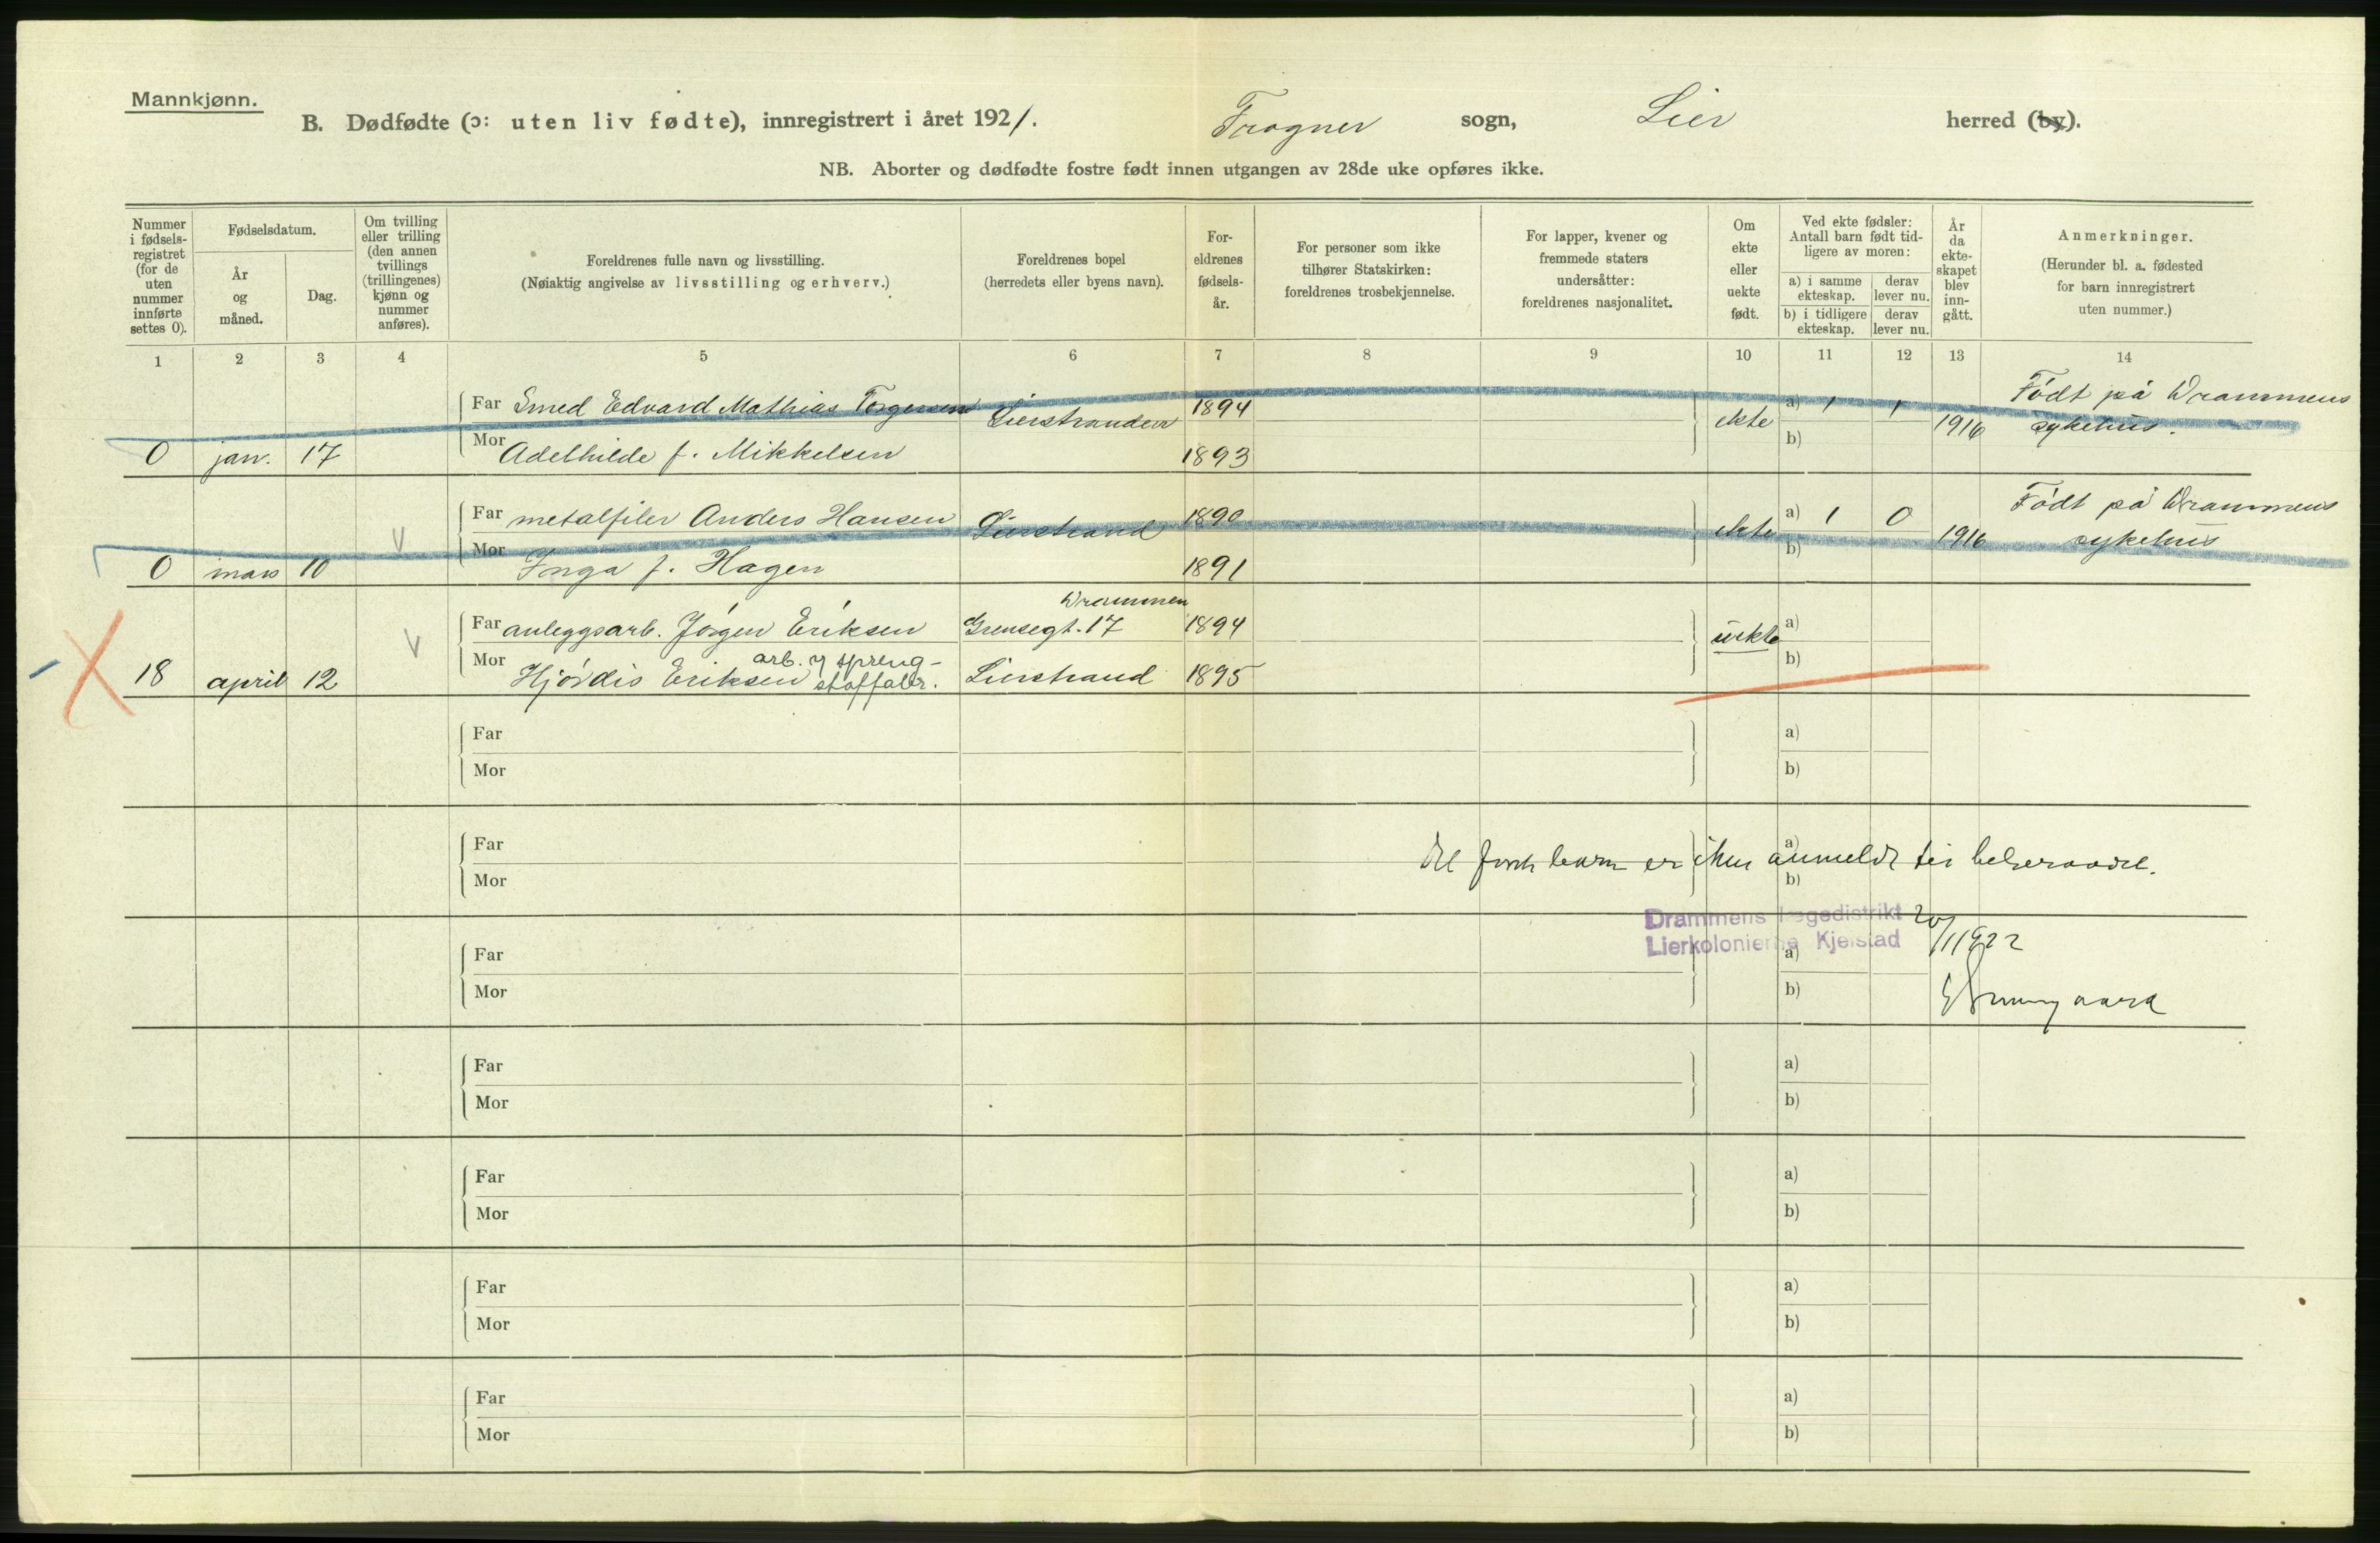 Mannkjønn.
B. Dødfødte (ɔ: uten liv fødte), innregistrert i året 1921. Frogner sogn, Lier herred (by).
NB. Aborter og dødfødte fostre født innen utgangen av 28de uke opføres ikke.
Nummer i fødsels-registret (for de uten nummer innførte settes 0).
Fødselsdatum.
År og måned.
Dag.
Om tvilling eller trilling (den annen tvillings (trillingenes) kjønn og nummer anføres).
Foreldrenes fulle navn og livsstilling.
(Nøiaktig angivelse av livsstilling og erhverv.)
Foreldrenes bopel
(herredets eller byens navn).
For-eldrenes fødsels-år.
For personer som ikke tilhører Statskirken: foreldrenes trosbekjennelse.
For lapper, kvener og fremmede staters undersåtter: foreldrenes nasjonalitet.
Om ekte eller uekte født.
Ved ekte fødsler: Antall barn født tid-ligere av moren:
a) i samme ekteskap. derav lever nu.
b) i tidligere ekteskap. derav lever nu.
År da ekte-skapet blev inn-gått.
Anmerkninger.
(Herunder bl. a. fødested for barn innregistrert uten nummer.)
1 2 3 4 5 6 7 8 9 10 11 12 13 14
Far Smed Edvard Mathias Torgersen Lierstranden 1894 ekte a) 1 1 1916 Født på Drammens sykehus.
0 jan. 17 Mor Adelhilde f. Mikkelsen 1893 b)
Far metalfiler Anders Hansen Lierstrand 1890 ekte a) 1 0 1916 Født på Drammens sykehus
0 mars 10 Mor Inga f. Hagen 1891 b)
Drammen
Far anleggsarb. Jörgen Eriksen Grensegt. 17 1894 uekte a)
arb. v spreng-
18 april 12 Mor Hjördis Eriksen stoffabr. Lierstrand 1895 b)
Far a)
Mor b)
Far a)
Det barn er anmeldt
Mor b)
Drammens lægedistrikt 20/1 1922
Lierkolonierne Kjelstad
Far a)
Mor b)
Far a)
Mor b)
Far a)
Mor b)
Far a)
Mor b)
Far a)
Mor b)